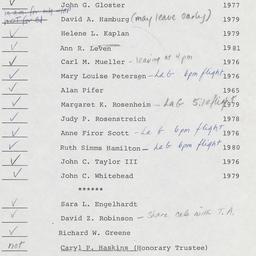 John G. Gloster 1977
not for sit David A. Hamburg (may leave early)
Helene L. Kaplan 1979
Ann R. Leven 1981
Carl M. Mueller - leaving at 4pm 1976
Mary Louise Petersen - LaG 6pm flight 1976
Alan Pifer 1965
Margaret K. Rosenheim - LaG 5:10 flight 1979
Judy P. Rosenstreich 1978
Anne Firor Scott - LaG 6pm flight 1976
Ruth Simms Hamilton - LaG 6pm flight 1980
John C. Taylor III 1976
John C. Whitehead 1979
******
Sara L. Engelhardt
David Z. Robinson - Share cab with T.A.
Richard W. Greene
not Caryl P. Haskins (Honorary Trustee)